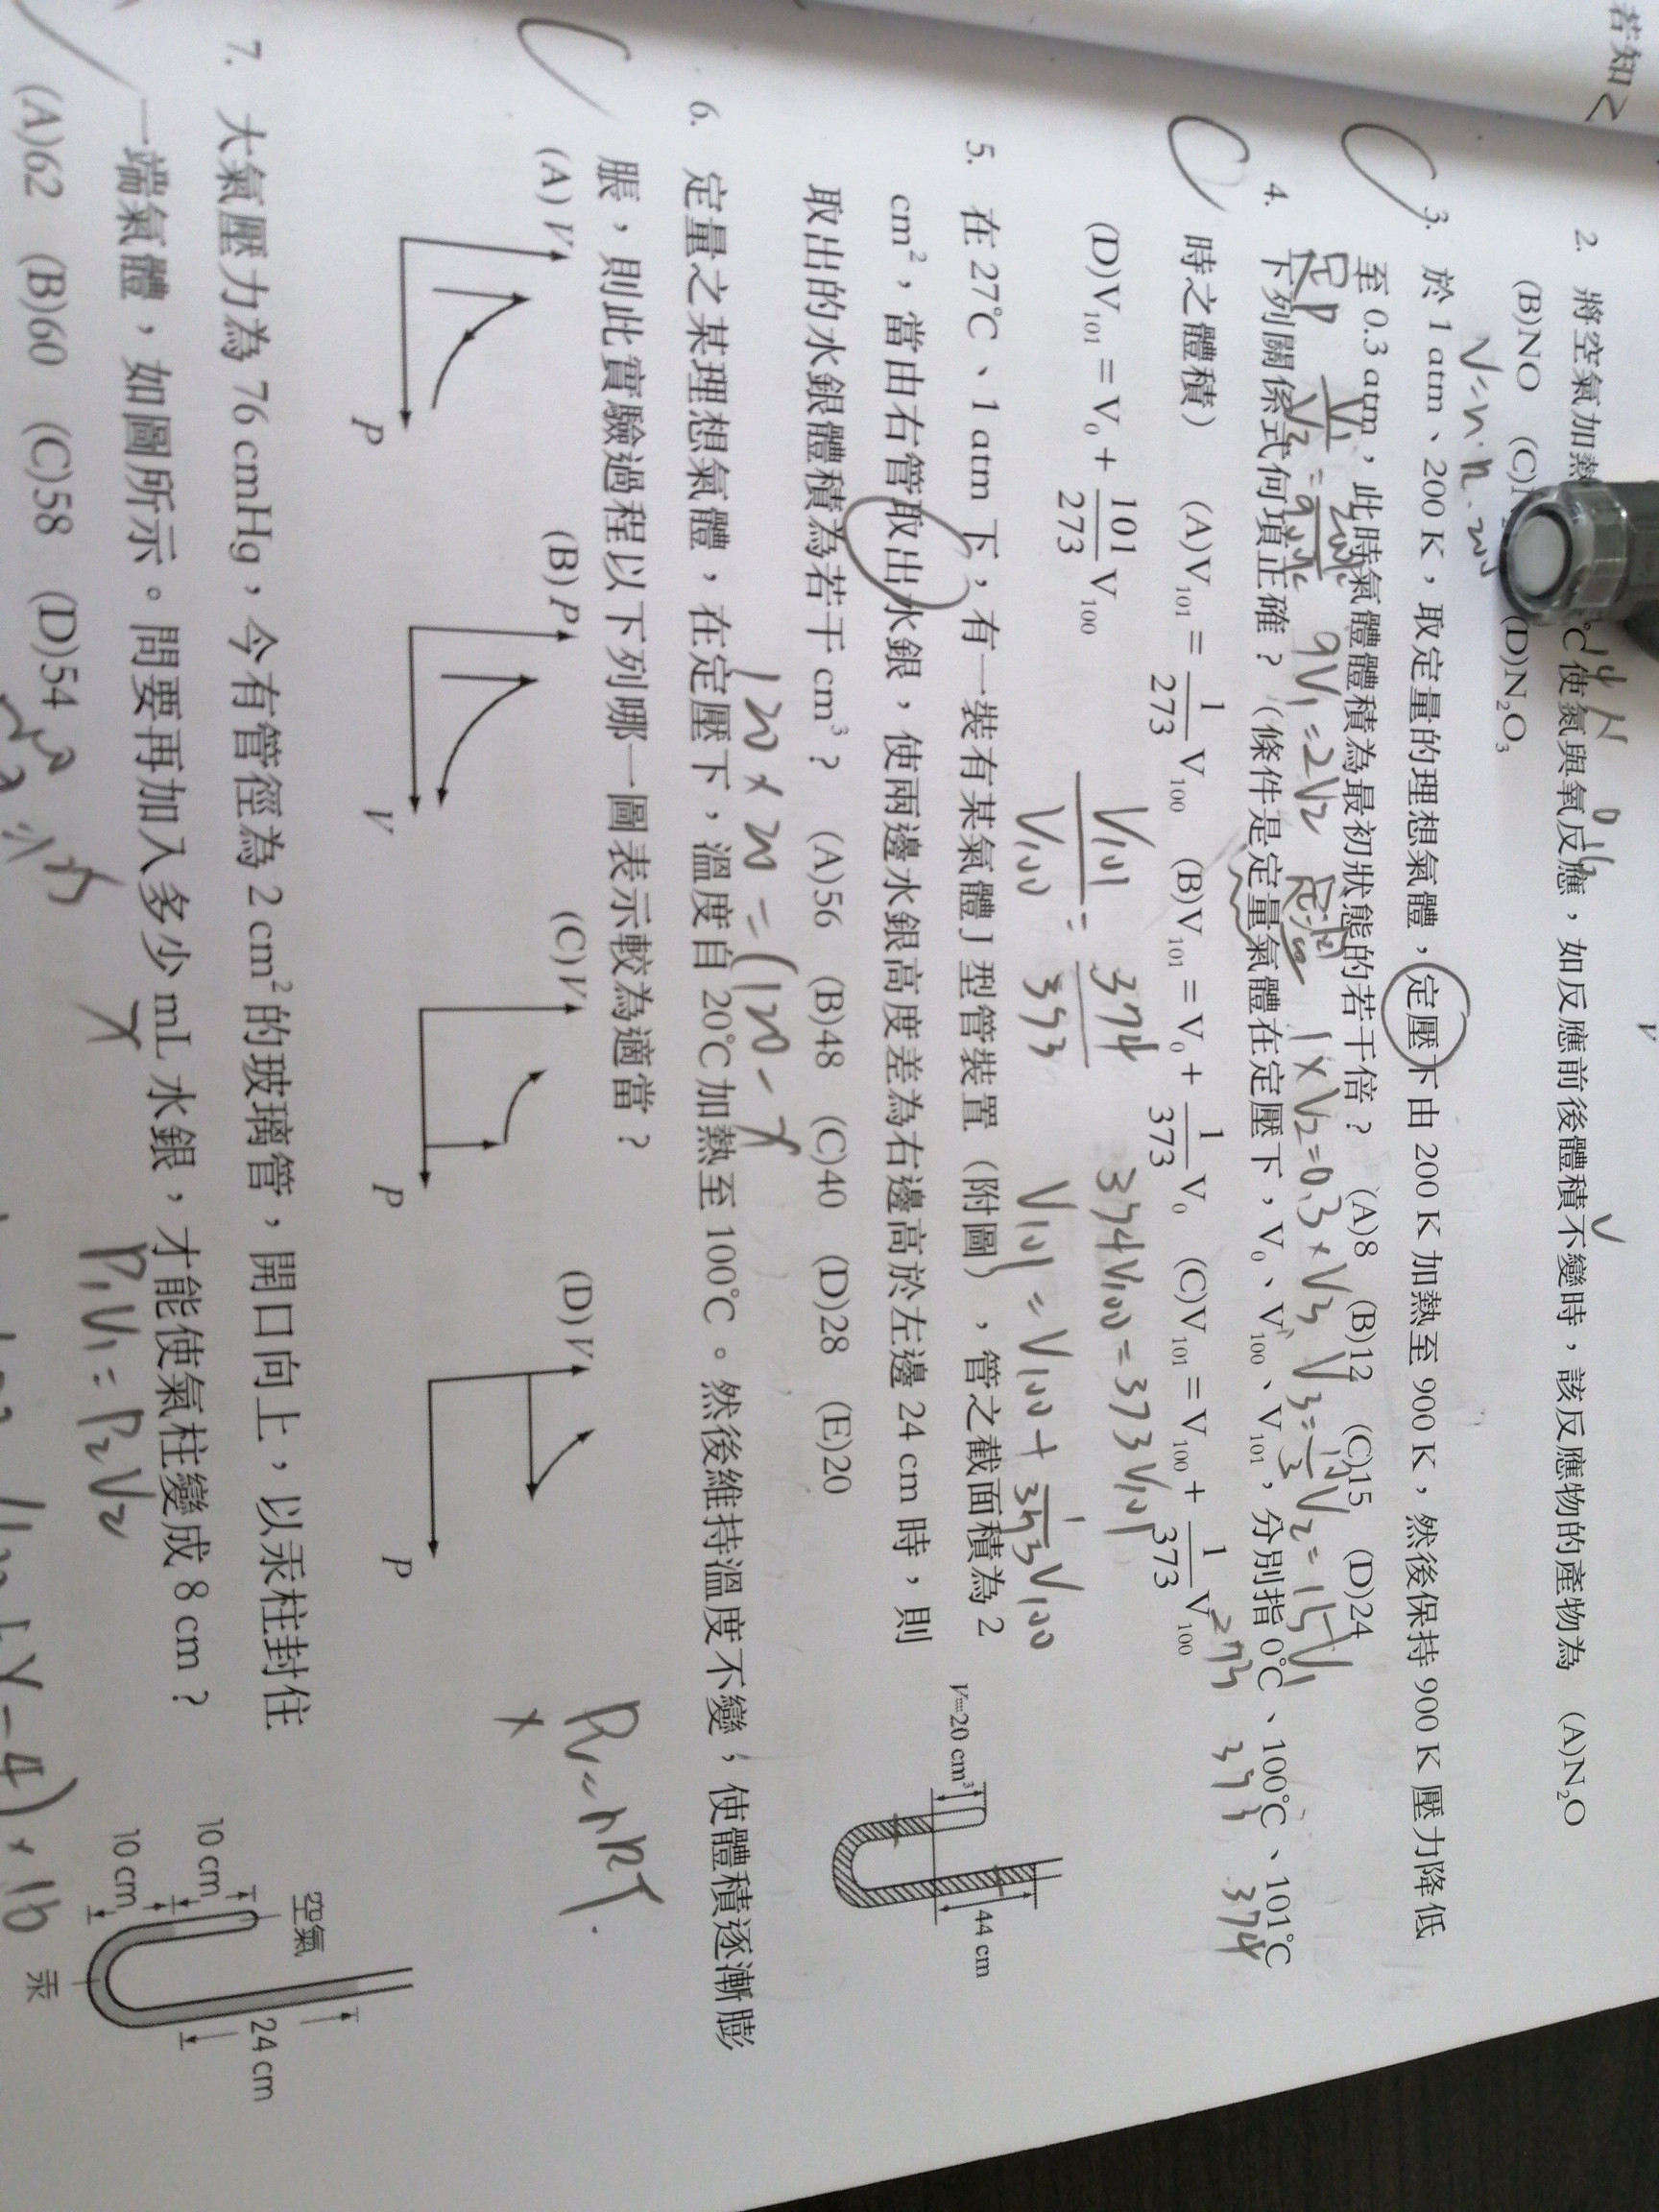 若知
2. 將空氣加熱 ℃使氮與氧反應，如反應前後體積不變時，該反應物的產物為 (A)N₂O
(B)NO (C) (D)N₂O₃
3. 於 1 atm、200 K，取定量的理想氣體，定壓下由 200 K 加熱至 900 K，然後保持 900 K 壓力降低
至 0.3 atm，此時氣體體積為最初狀態的若干倍？ (A)8 (B)12 (C)15 (D)24
定P V₁/V₂ = 9V₁=2V₂ 1×V₂=0.3×V₃ V₃=10/3V₂=15V₁
4. 下列關係式何項正確？（條件是定量氣體在定壓下，V₀、V₁₀₀、V₁₀₁，分別指 0℃、100℃、101℃
273 373 374
時之體積） (A)V₁₀₁ = 1/273 V₁₀₀ (B)V₁₀₁ = V₀ + 1/373 V₀ (C)V₁₀₁ = V₁₀₀ + 1/373 V₁₀₀
(D)V₁₀₁ = V₀ + 101/273 V₁₀₀
V₁₀₁/V₁₀₀ = 374/373 374V₁₀₀=373V₁₀₁
V₁₀₁ = V₁₀₀ + 1/373 V₁₀₀
5. 在 27℃、1 atm 下，有一裝有某氣體 J 型管裝置（附圖），管之截面積為 2
cm²，當由右管取出水銀，使兩邊水銀高度差為右邊高於左邊 24 cm 時，則
取出的水銀體積為若干 cm³？ (A)56 (B)48 (C)40 (D)28 (E)20
V=20 cm³
44 cm
120×20=(120-x
6. 定量之某理想氣體，在定壓下，溫度自 20℃加熱至 100℃。然後維持溫度不變，使體積逐漸膨
脹，則此實驗過程以下列哪一圖表示較為適當？
PV=nRT
(A) V P
(B) P V
(C) V P
(D) V P
7. 大氣壓力為 76 cmHg，今有管徑為 2 cm²的玻璃管，開口向上，以汞柱封住
一端氣體，如圖所示。問要再加入多少 mL 水銀，才能使氣柱變成 8 cm？
(A)62 (B)60 (C)58 (D)54
空氣
10 cm
10 cm
24 cm
汞
P₁V₁=P₂V₂